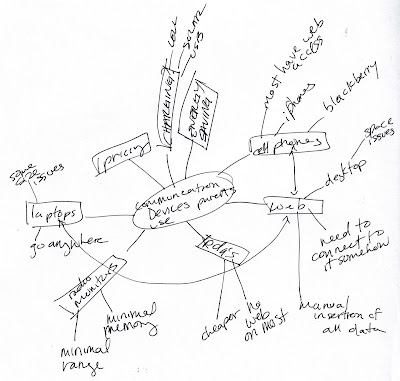 cell
solar
USB
CHARGING
ENERGY
SAVING
most have web
access
iphones
blackberry
cell phones
pricing
communication
Devices parents
use
space
issues
desktop
web
need to
connect to
it somehow
manual
insertion of
all data
some
size
issues
laptops
go anywhere
radio
monitors
minimal
memory
minimal
range
today's
cheaper
no
web
on most